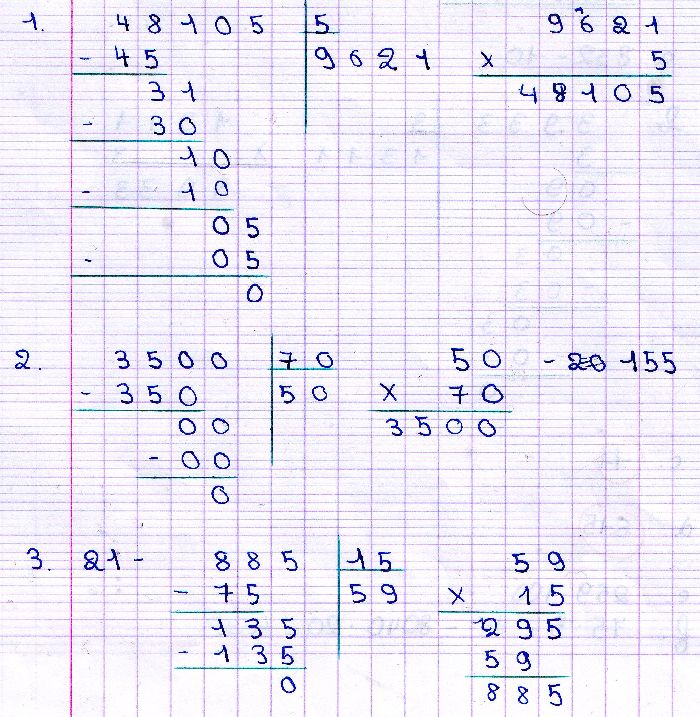 1. 48105 5 9621
- 45 9621 x 5
31 48105
- 30
10
- 10
05
- 05
0
2. 3500 70 50 - 155
- 350 50 x 70
00 3500
- 00
0
3. 21 - 885 15 59
- 75 59 x 15
135 295
- 135 59
0 885